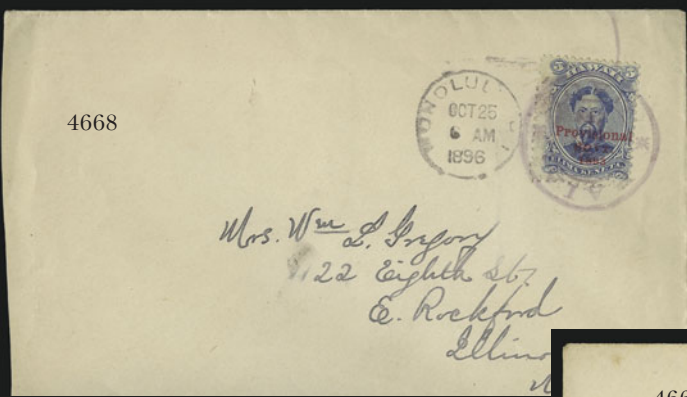 4668
HONOLULU
OCT 25
6 AM
1896
5 HAWAII 5
Provisional
GOVT.
1893
ELIMA KENETA
Mrs. Wm L. Gregory
22 Eighth St.
E. Rockford
Illino
466